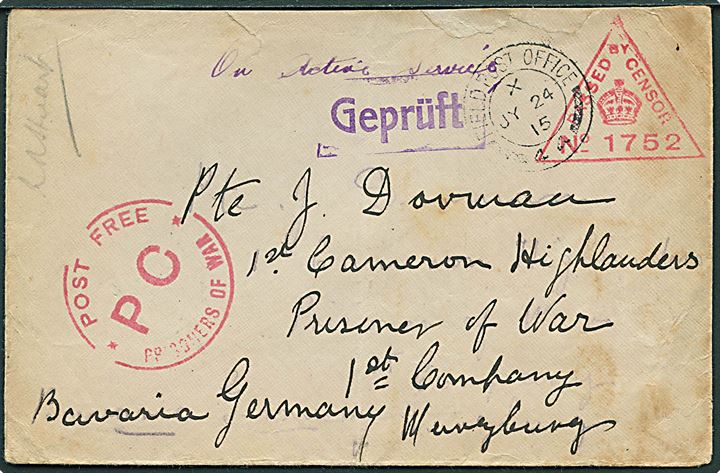 On Active Service
Geprüft
FIELD POST OFFICE
X
JY 24
15
PASSED BY CENSOR
No 1752
POST FREE
PC
PRISONERS OF WAR
Pte J. Dorman
1st Cameron Highlanders
Prisoner of War
1st Company
Bavaria Germany Wurzburg